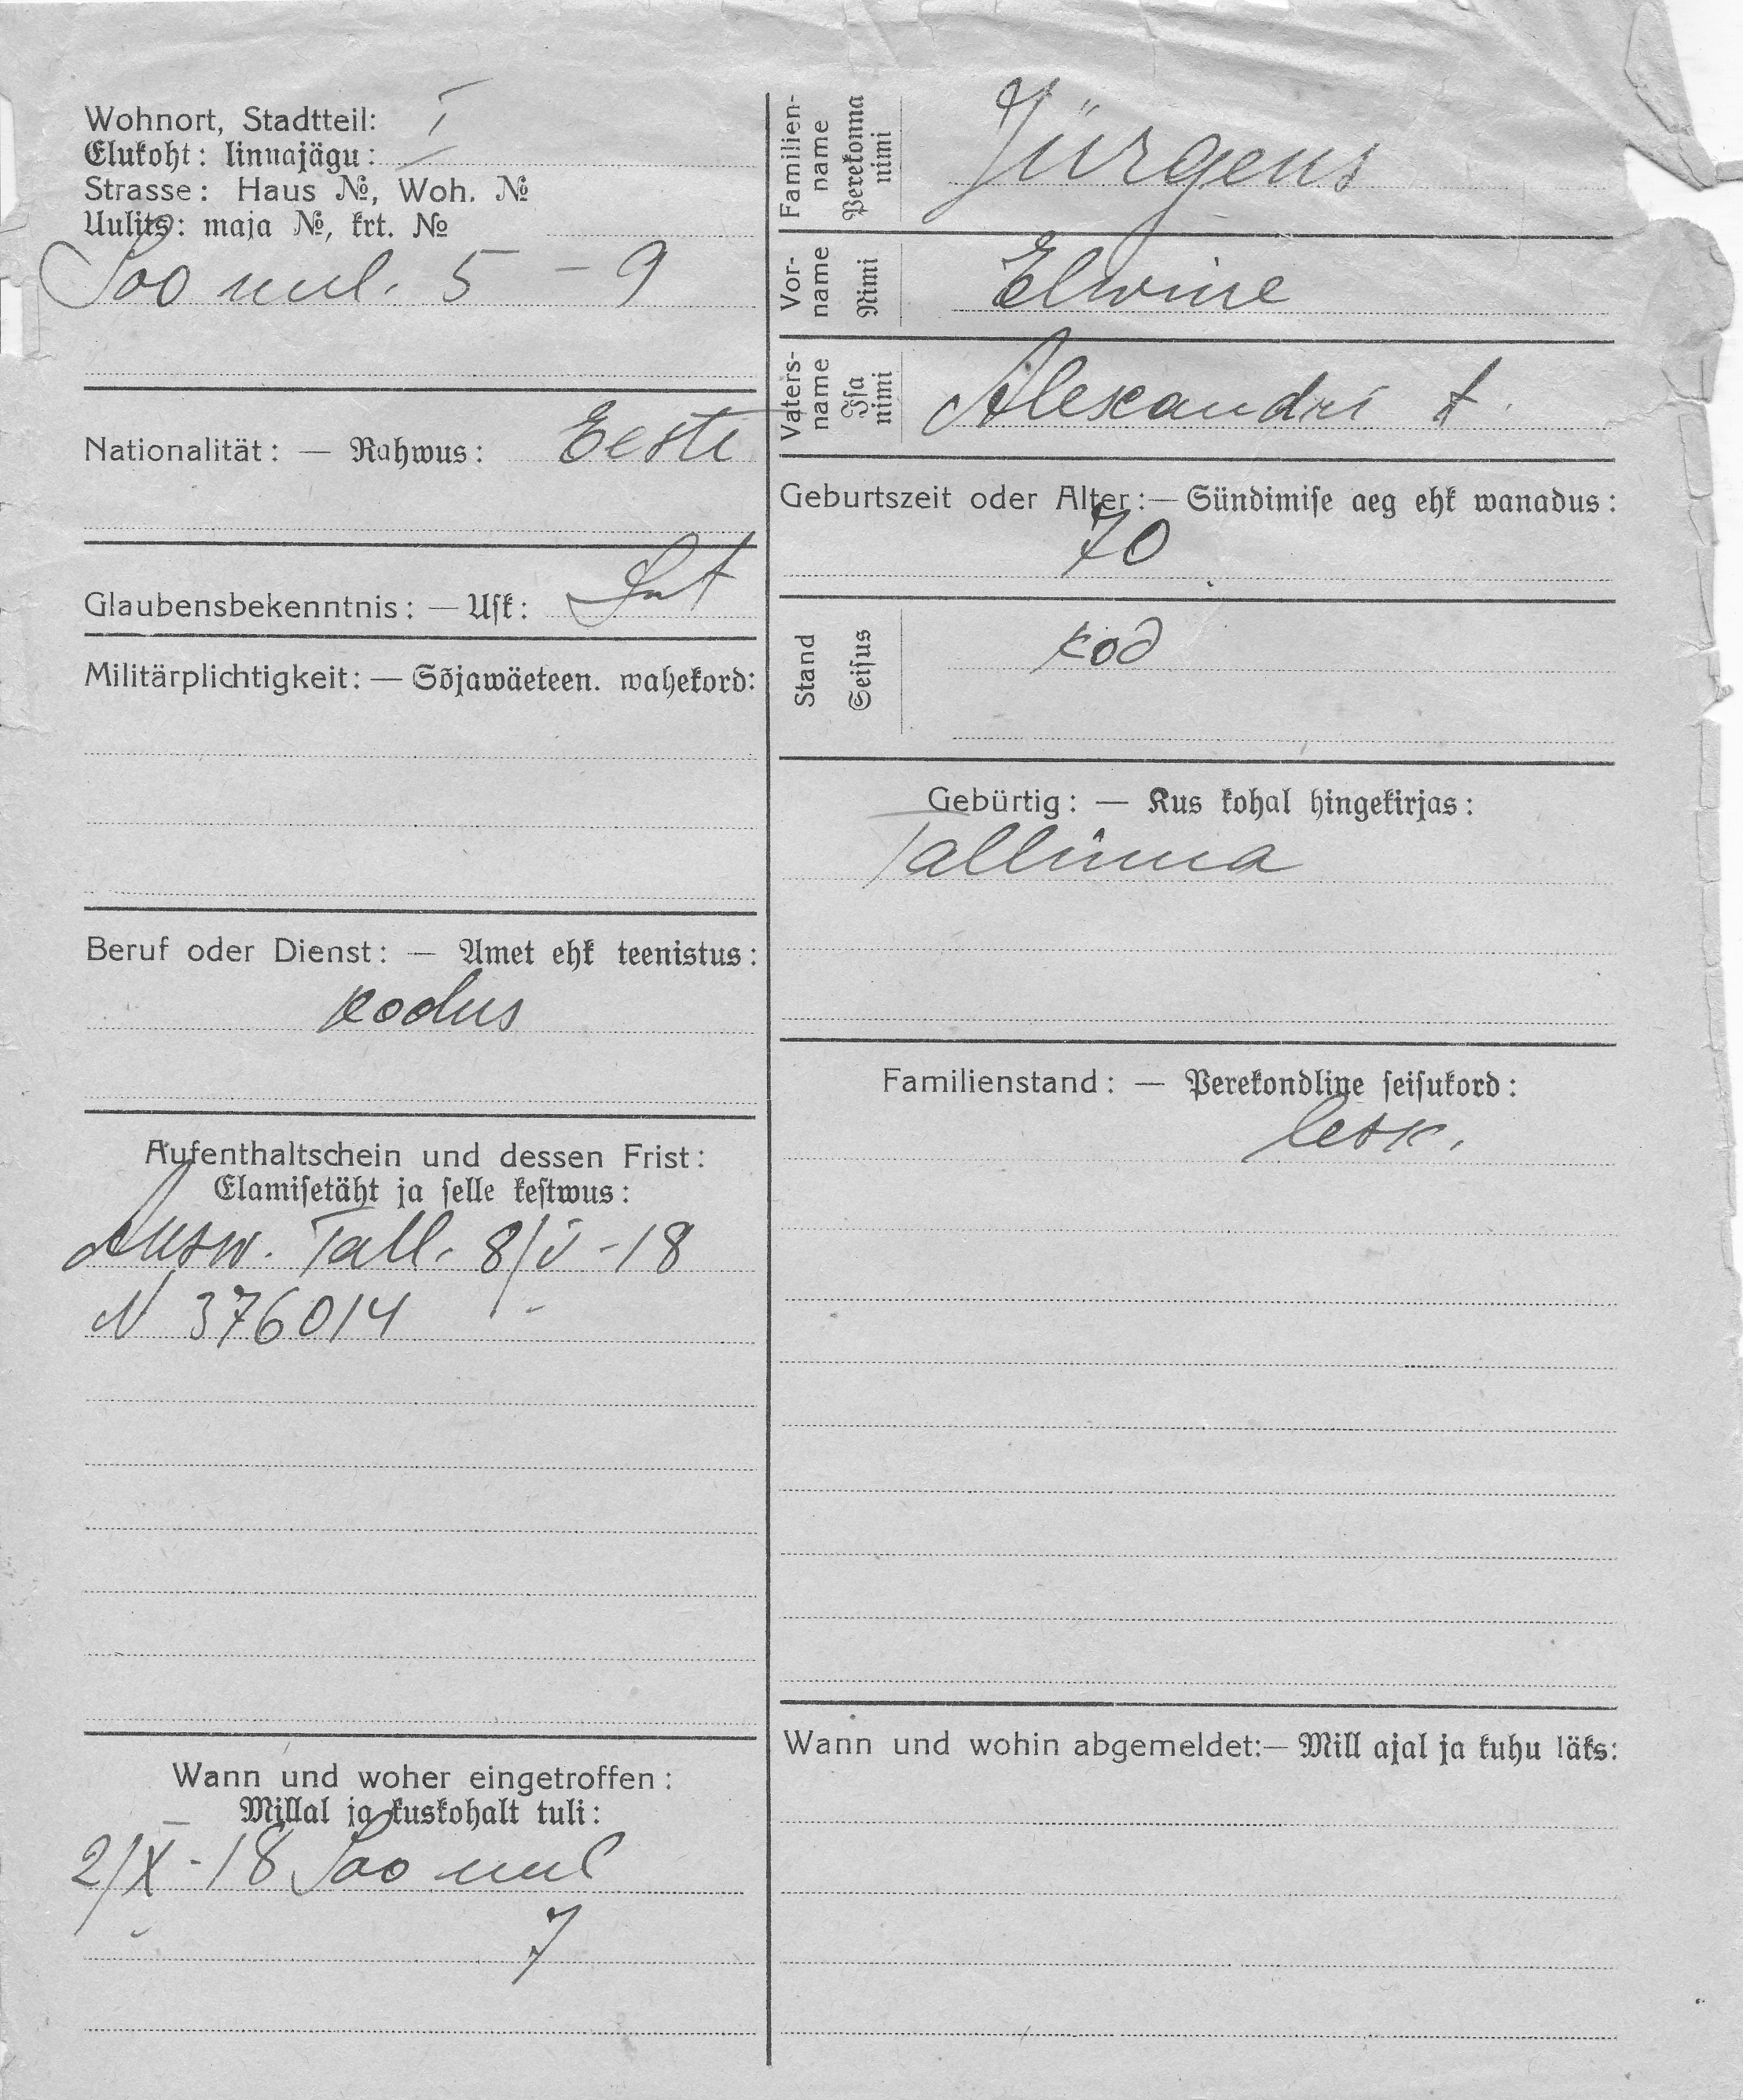 Wohnort, Stadtteil: I
Elukoht: linnajägu:
Strasse: Haus №, Woh. №
Uulits: maja №, krt. №
Soo uul. 5 – 9
Nationalität: — Rahwus: Eesti
Glaubensbekenntnis: — Usk: Lut
Militärplichtigkeit: — Sõjawäeteen. wahekord:
Beruf oder Dienst: — Amet ehk teenistus:
kodus
Aufenthaltschein und dessen Frist:
Elamisetäht ja selle kestwus:
Ausw. Tall. 8/V - 18
N 376014
Wann und woher eingetroffen:
Millal ja kuskohalt tuli:
2/X - 18 Soo uul
7
Familien-
name
Perekonna
nimi
Jürgens
Vor-
name
Nimi
Elwine
Vaters-
name
Isa
nimi
Alexandri t.
Geburtszeit oder Alter: — Sündimise aeg ehk wanadus:
70
Stand
Seisus
kod
Gebürtig: — Kus kohal hingekirjas:
Tallinna
Familienstand: — Perekondline seisukord:
lesk.
Wann und wohin abgemeldet: — Mill ajal ja kuhu läks: